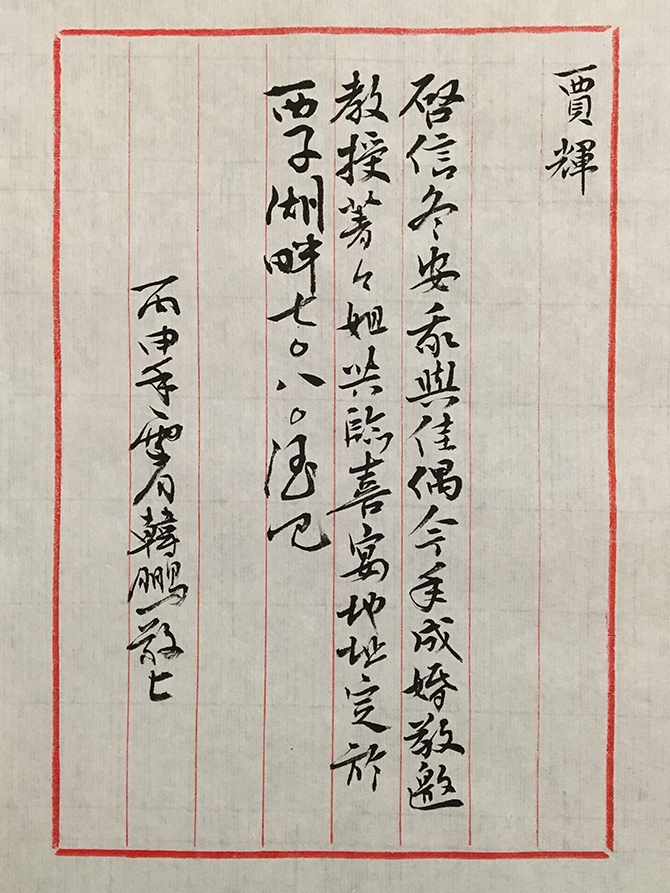 賈輝
啓信冬安我與佳偶今年成婚敬邀
教授著々姐共臨喜宴地址定於
西子湖畔七〇八〇酒巴
丙申年雪月韓鵬敬上